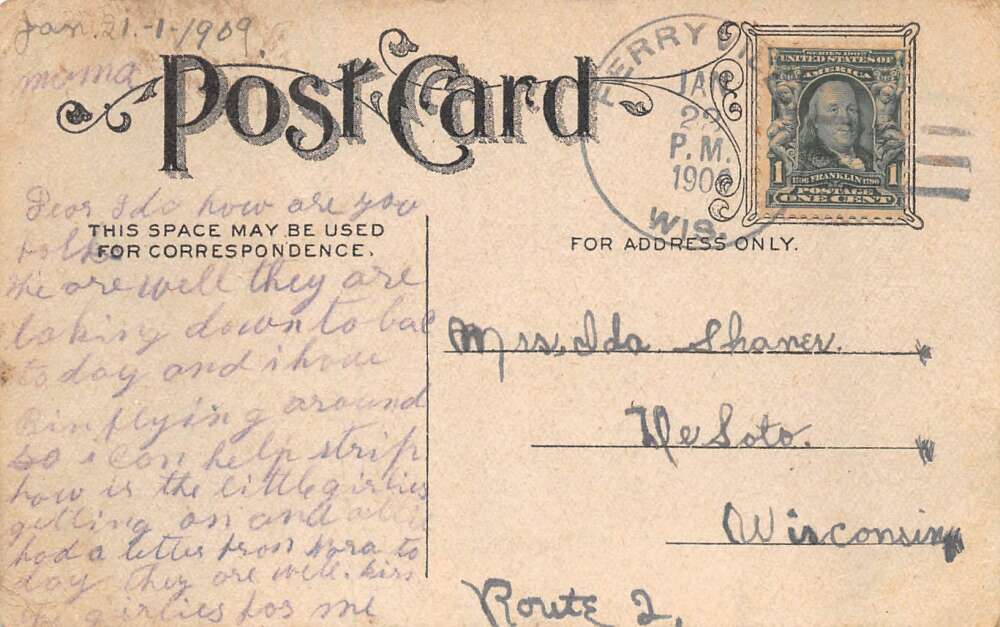 Jan. 21.-1-1909.
mama
Post Card
FERRY
JAN
22
P.M.
190
WIS.
SERIES 1902
UNITED STATES OF
AMERICA
1 1706 FRANKLIN 1790 1
POSTAGE
ONE CENT
Dear Ida how are you
THIS SPACE MAY BE USED
FOR CORRESPONDENCE.
FOR ADDRESS ONLY.
folks
We are well they are
taking down to bac
to day and i have
bin flying around
so i can help strip
how is the little girlies
getting on and
had a letter from Nora to
day they are well. kiss
girlies for me
Mrs. Ida Shaner.
De Soto.
Wisconsin
Route 2,